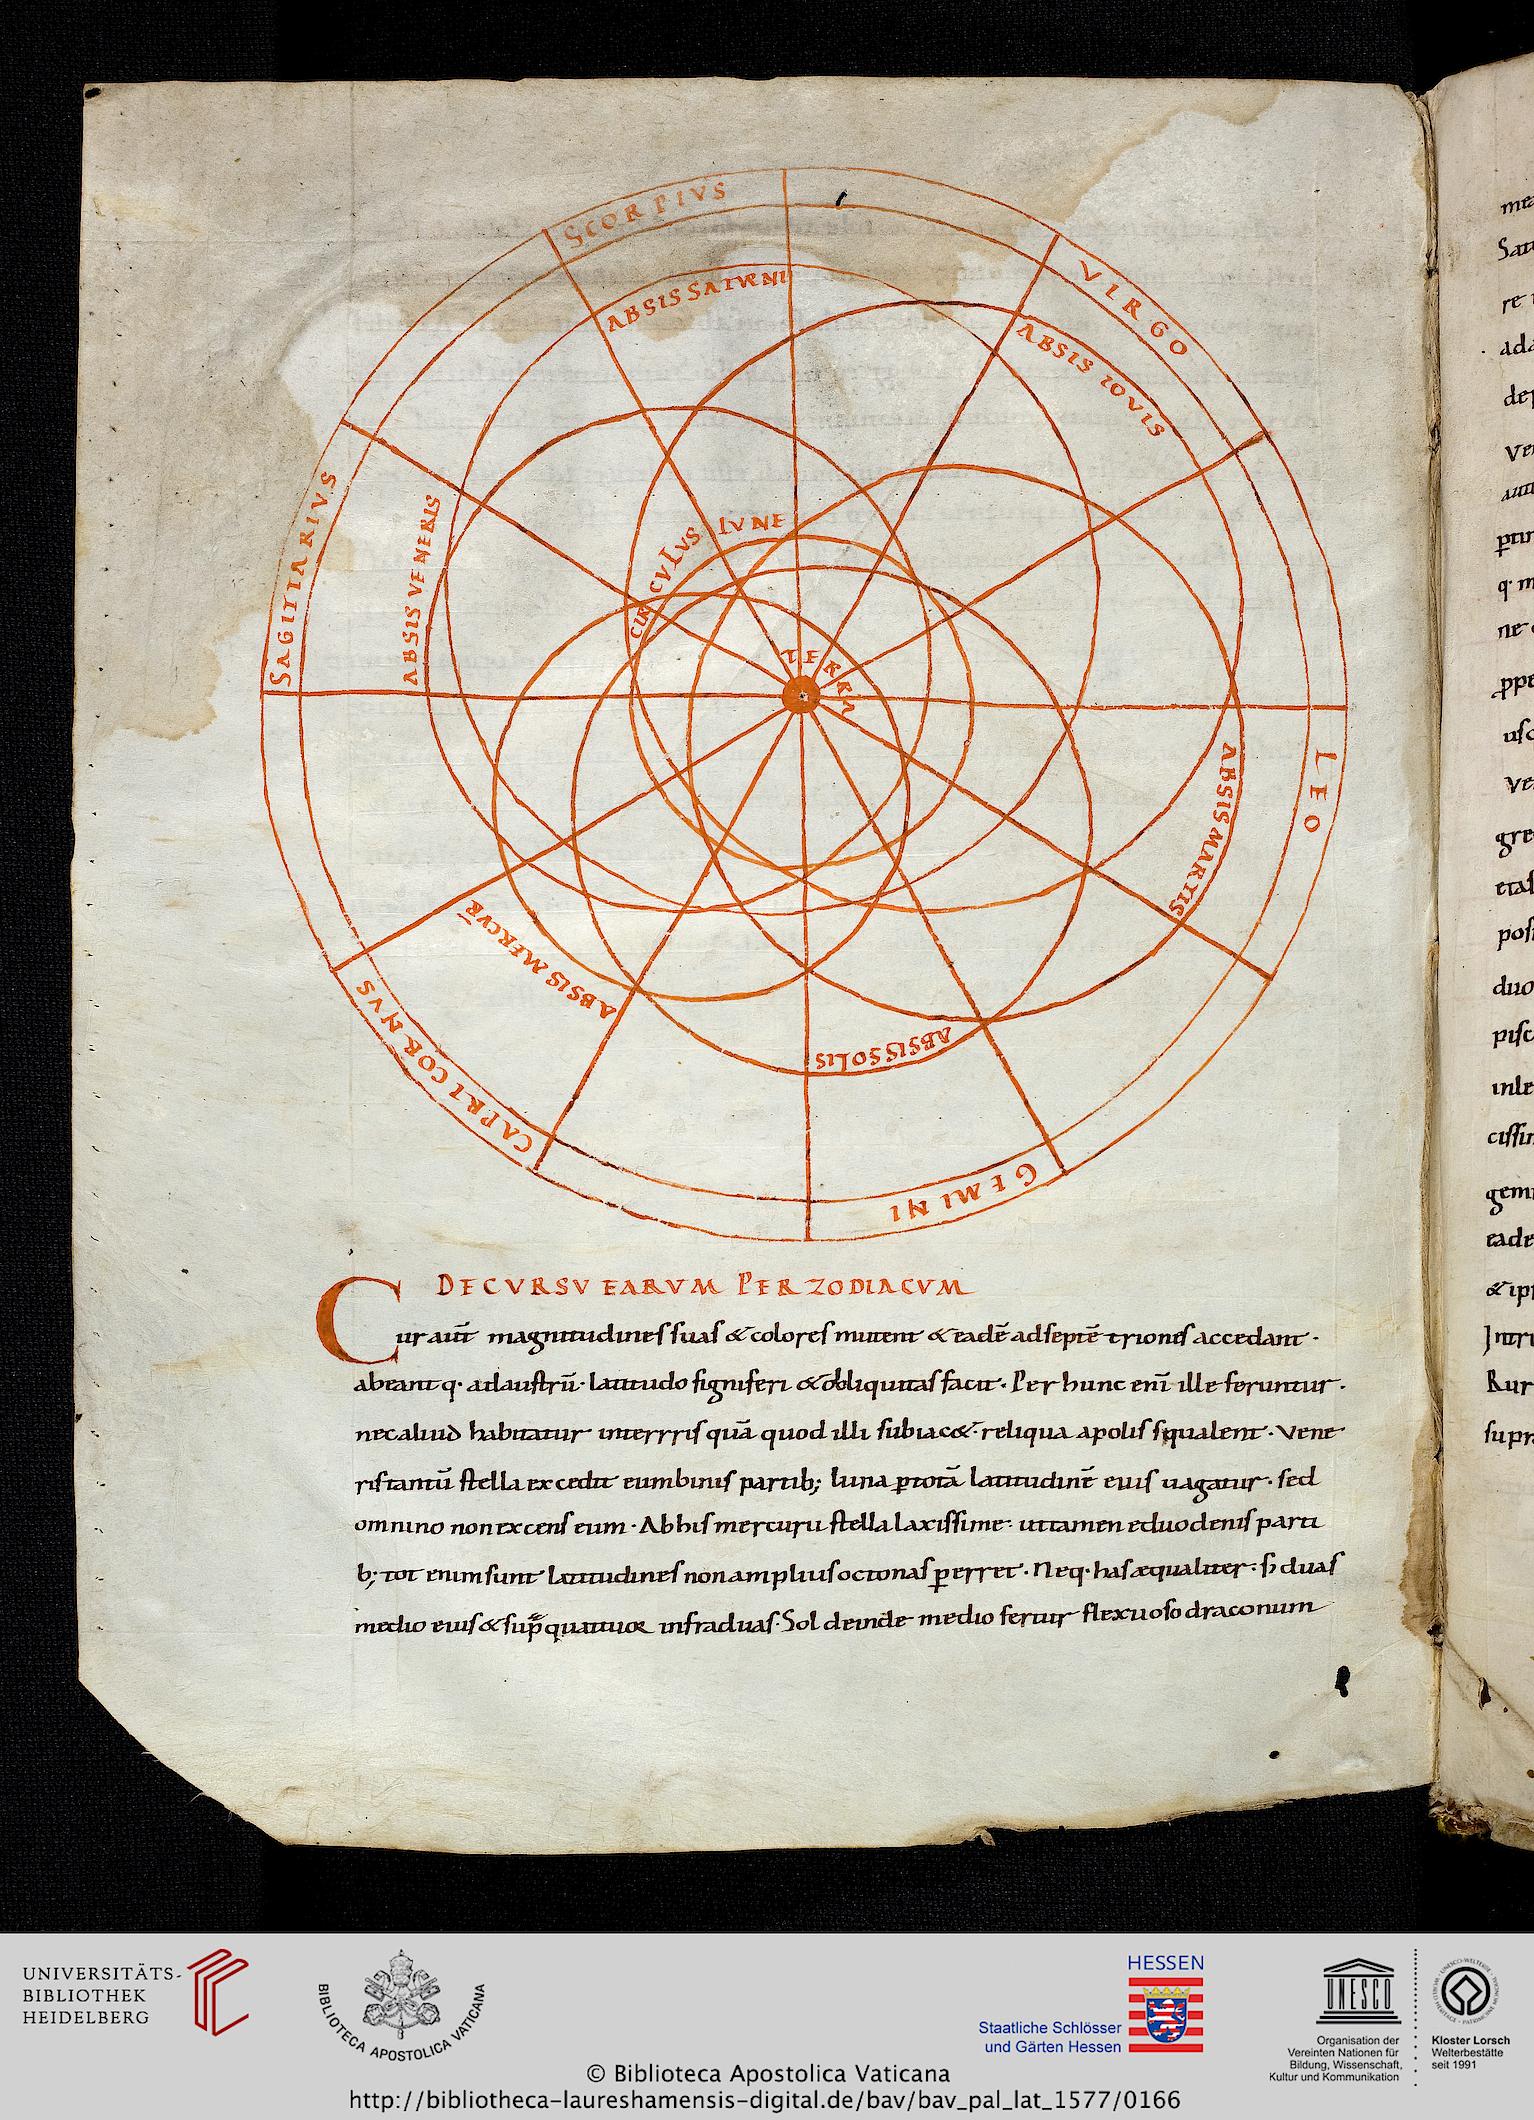 SCORPIVS
VIRGO
LEO
GEMINI
CAPRICORNVS
SAGITTARIVS
ABSIS SATVRNI
ABSIS IOVIS
ABSIS MARTIS
ABSIS SOLIS
ABSIS MERCVR̄
ABSIS VENERIS
CIRCVLVS LVNE
TERRA
DE CVRSV EARVM PER ZODIACVM
Cur aut̄ magnitudines suas & colores mutent & eadē ad septē triones accedant ·
abeant q· ad austrū· latitudo signiferi & obliquitas facit· Per hunc enī ille feruntur·
nec aliud habitatur in terrris quā quod illi subiac&· reliqua a polis squalent· Vene
ris tantū stella excedit eum binis partib; luna ꝑ totā latitudinē eius uagatur· sed
omnino non excens eum· Ab his mercurii stella laxissime· ut tamen e duodenis parti
b; tot enim sunt latitudines non amplius octonas ꝑerret· Neq· has æqualiter· sꝫ duas
medio eius & sup̄ quattuor infra duas· Sol deinde medio fertur flexuoso draconum
mea
Satu
re
ada
dep
Ve
ptin
q· m
ne
ppe
usc
Ve
gre
etas
pos
duo
pisc
inle
cissim
gemi
eade
& ip
Intr
Rur
supr
UNIVERSITÄTS-
BIBLIOTHEK
HEIDELBERG
BIBLIOTECA APOSTOLICA VATICANA
HESSEN
Staatliche Schlösser
und Gärten Hessen
UNESCO
Organisation der
Vereinten Nationen für
Bildung, Wissenschaft,
Kultur und Kommunikation
Kloster Lorsch
Welterbestätte
seit 1991
© Biblioteca Apostolica Vaticana
http://bibliotheca-laureshamensis-digital.de/bav/bav_pal_lat_1577/0166